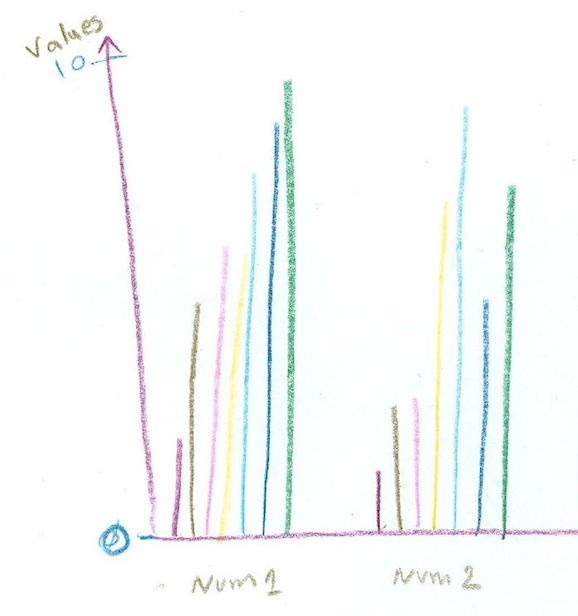 Values
10
0
Num 1
Num 2